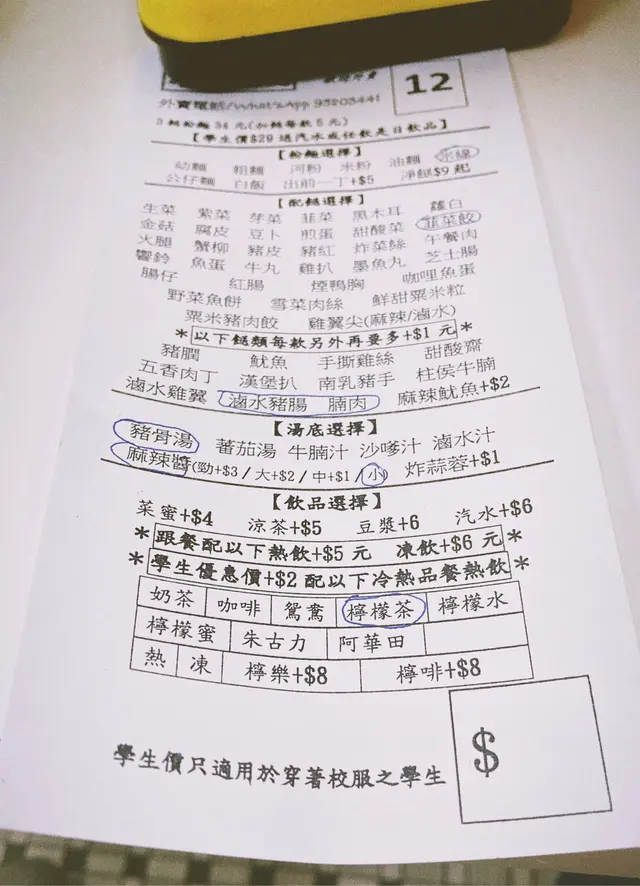 12
外賣電話/What's App 95203441
3 餸粉麵 34 元(加餸每款 5 元)
【學生價$29 送汽水或任飲是日飲品】
【粉麵選擇】
幼麵 粗麵 河粉 米粉 油麵 米線
公仔麵 白飯 出前一丁+$5 淨餸$9 起
【配餸選擇】
生菜 紫菜 芽菜 韮菜 黑木耳 蘿白
金菇 腐皮 豆卜 煎蛋 甜酸菜 韮菜餃
火腿 蟹柳 豬皮 豬紅 炸菜絲 午餐肉
響鈴 魚蛋 牛丸 雞扒 墨魚丸 芝士腸
腸仔 紅腸 煙鴨胸 咖哩魚蛋
野菜魚餅 雪菜肉絲 鮮甜粟米粒
粟米豬肉餃 雞翼尖(麻辣/滷水)
*以下餸類每款另外再要多+$1 元*
豬膶 魷魚 手撕雞絲 甜酸齋
五香肉丁 漢堡扒 南乳豬手 柱侯牛腩
滷水雞翼 滷水豬腸 腩肉 麻辣魷魚+$2
【湯底選擇】
豬骨湯 蕃茄湯 牛腩汁 沙嗲汁 滷水汁
麻辣醬(勁+$3 / 大+$2 / 中+$1 / 小) 炸蒜蓉+$1
【飲品選擇】
菜蜜+$4 涼茶+$5 豆漿+6 汽水+$6
*跟餐配以下熱飲+$5 元 凍飲+$6 元*
*學生優惠價+$2 配以下冷熱品餐熱飲*
奶茶 咖啡 鴛鴦 檸檬茶 檸檬水
檸檬蜜 朱古力 阿華田
熱 凍 檸樂+$8 檸啡+$8
學生價只適用於穿著校服之學生
$